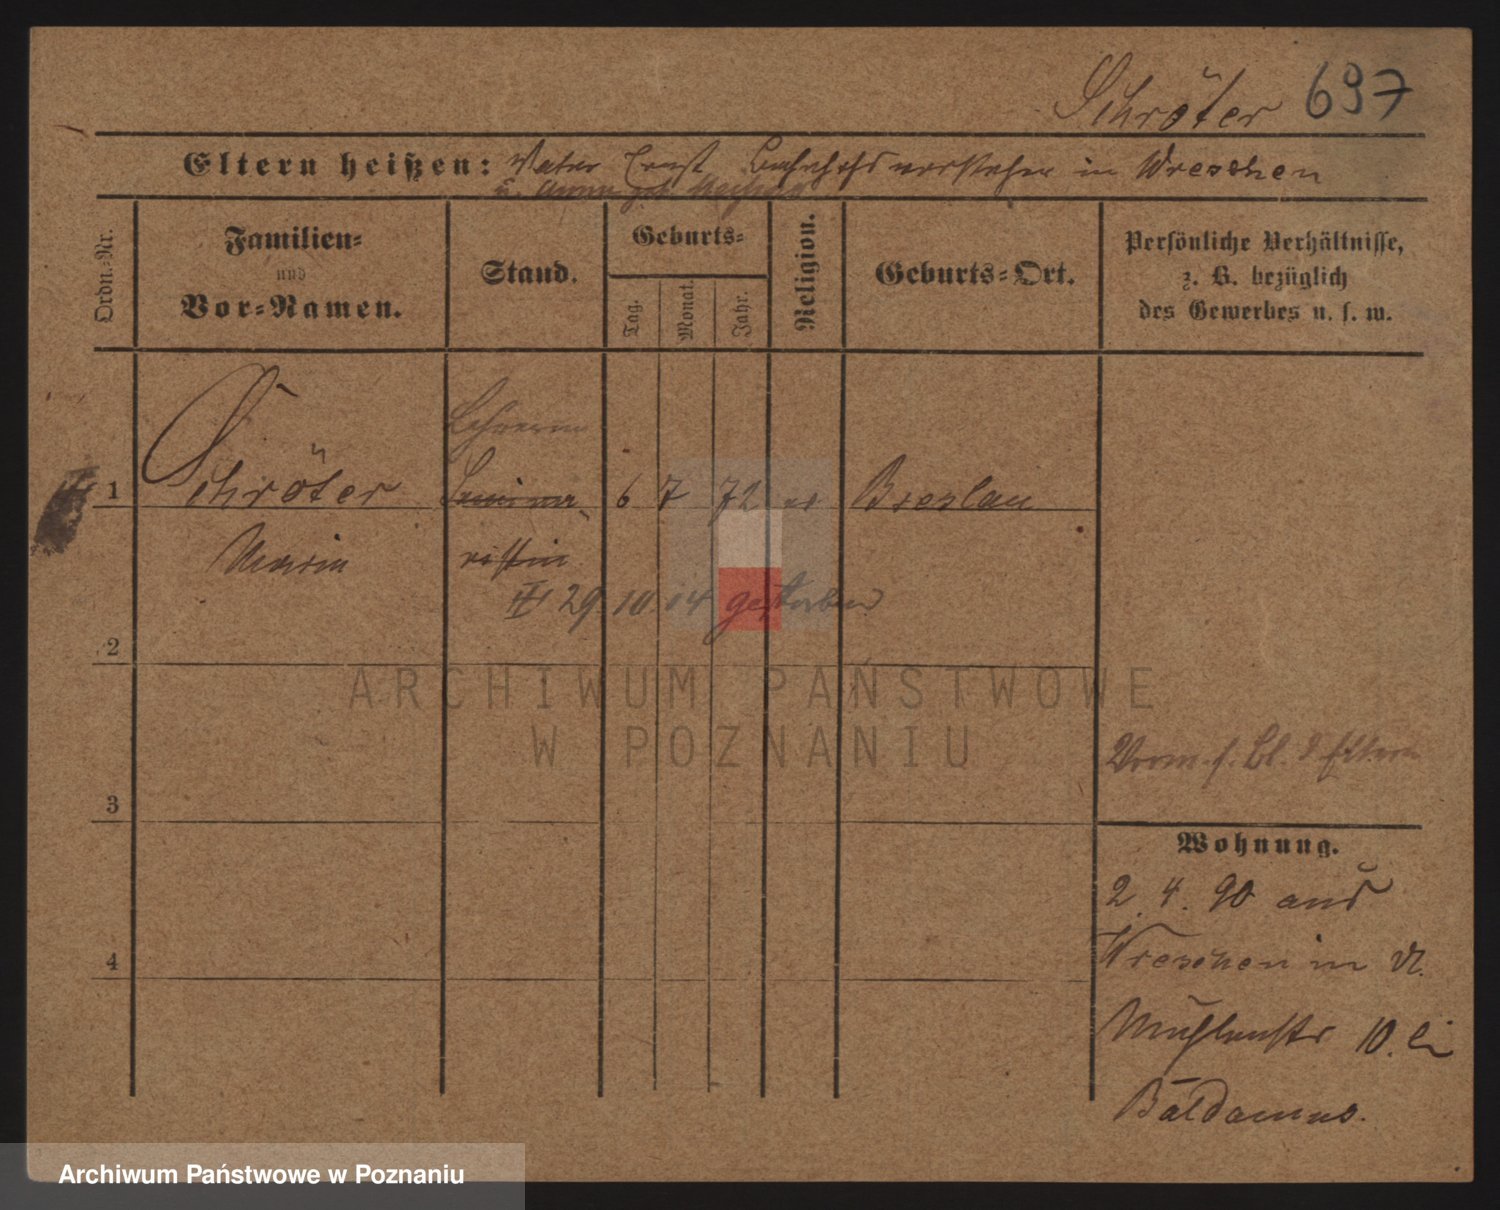 Schröter 697
Eltern heißen: Vater Ernst Bahnhofsvorsteher in Wreschen
u. Anna geb.
Ordn.-Nr.
Familien-
und
Vor-Namen.
Stand.
Geburts-
Tag.
Monat.
Jahr.
Religion.
Geburts-Ort.
Persönliche Verhältnisse,
z. B. bezüglich
des Gewerbes u. s. w.
Lehrerin
1 Schröter Semina- 6 7 72 ev Breslau
Maria ristin
29 10 04 gestorben
2
ARCHIWUM PAŃSTWOWE
W POZNANIU
Vorm. s. Bl. d. Eltern
3
Wohnung.
2. 4. 90 aus
4 Wreschen in
Mühlenstr 10. bei
Baldamus.
Archiwum Państwowe w Poznaniu